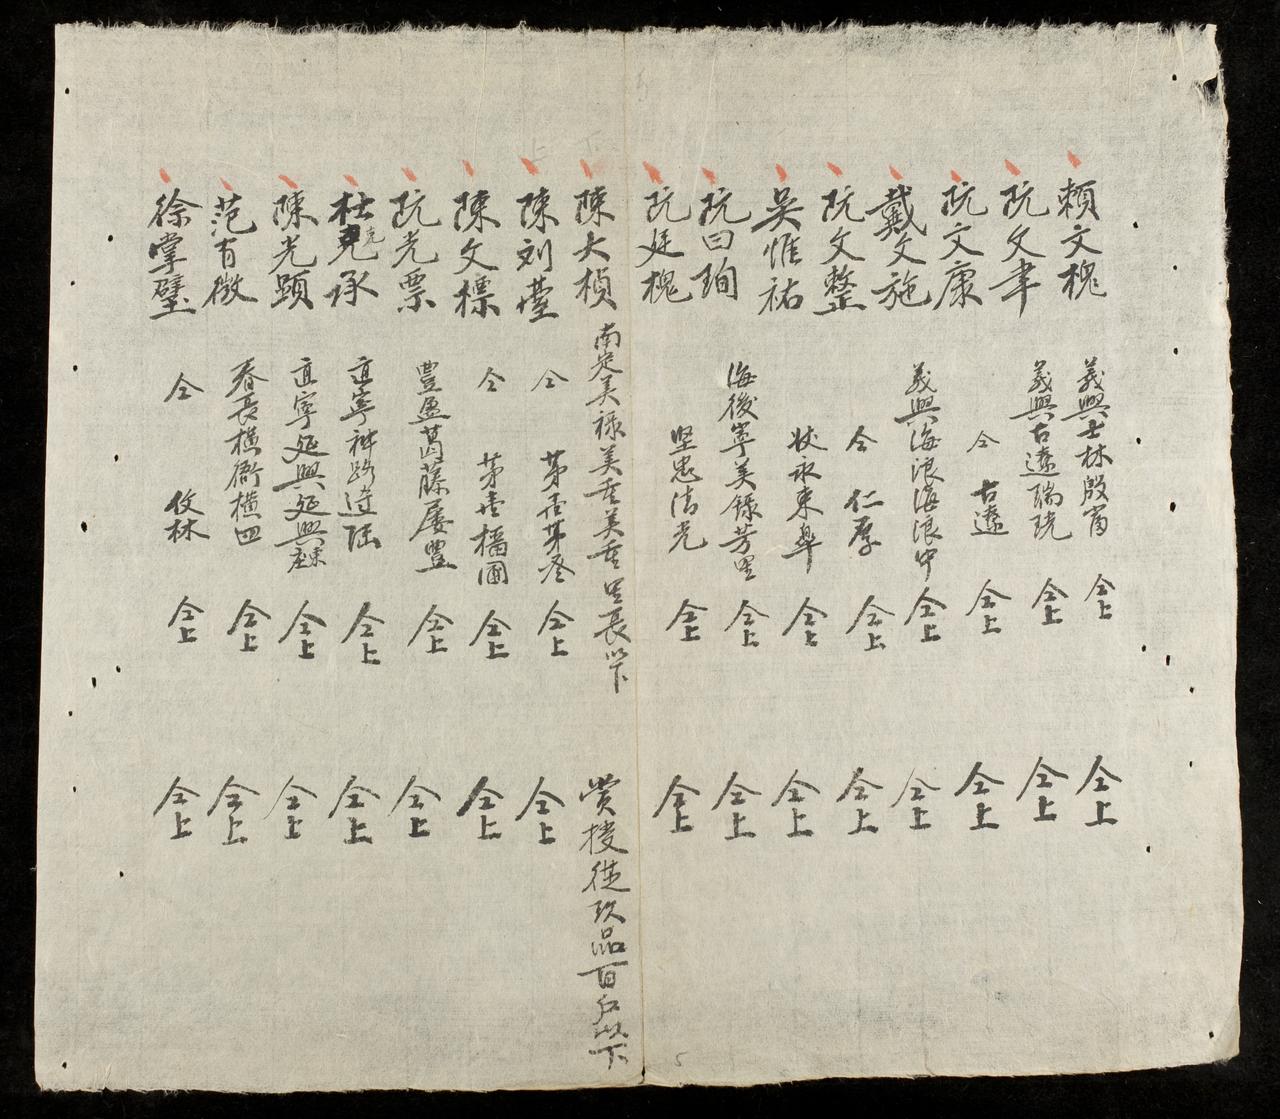 賴文槐 義興士林殷富 仝上 仝上
阮文聿 義興古遼瑞琓 仝上 仝上
阮文康 仝 古遼 仝上 仝上
戴文施 義興海浪海浪中 仝上 仝上
阮文整 仝 仁厚 仝上 仝上
吳惟祐 永東皐 仝上 仝上
阮曰珣 海後寧美錄芳里 仝上 仝上
阮廷槐 坚忠法光 仝上 仝上
陳大楨 南定美祿美重美重里長以下 賞授從玖品百戶以下
陳刘 仝 苐壹苐叄 仝上 仝上
陳文標 仝 苐壹 圃 仝上 仝上
阮光票 豐盈葛藤屡豐 仝上 仝上
杜克承 直寧神路 陆 仝上 仝上
陳光顕 直寧延興延興東 仝上 仝上
范有徵 春長橫衢橫四 仝上 仝上
徐掌璧 仝 攸林 仝上 仝上
5